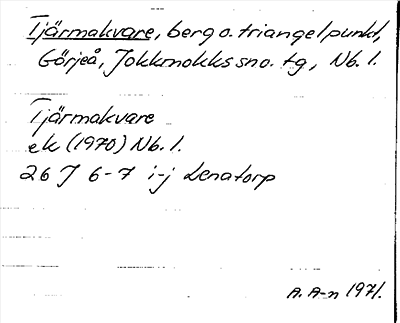 Tjärmakvare, berg o. triangelpunkt,
Görjeå, Jokkmokks sno. tg, Nb. l.
Tjärmakvare
ek (1970) Nb. l.
26 J 6-7 i-j Lenatorp
A. A-n 1971.